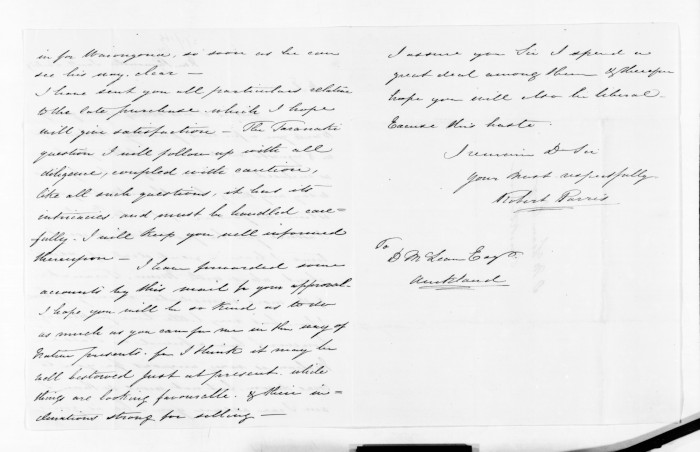 in for Waiongona, so soon as he can
see his way clear —
I have sent you all particulars relative
to the late purchase which I hope
will give satisfaction — The Taranaki
question I will follow up with all
diligence, coupled with caution,
like all such questions, it has its
intricacies and must be handled care=
fully. I will keep you well informed
thereupon — I have forwarded some
accounts by this mail for your approval.
I hope you will be so kind as to do
as much as you can for me in the way of
Native presents. for I think it may be
well bestowed just at present. while
things are looking favourable. & their in=
clinations strong for selling —
I assure you Sir I spend a
great deal among them & therefore
hope you will also be liberal.
Excuse this haste.
I remain D Sir
Yours most respectfully
Robert Parris
To
D McLean Esqr
Auckland